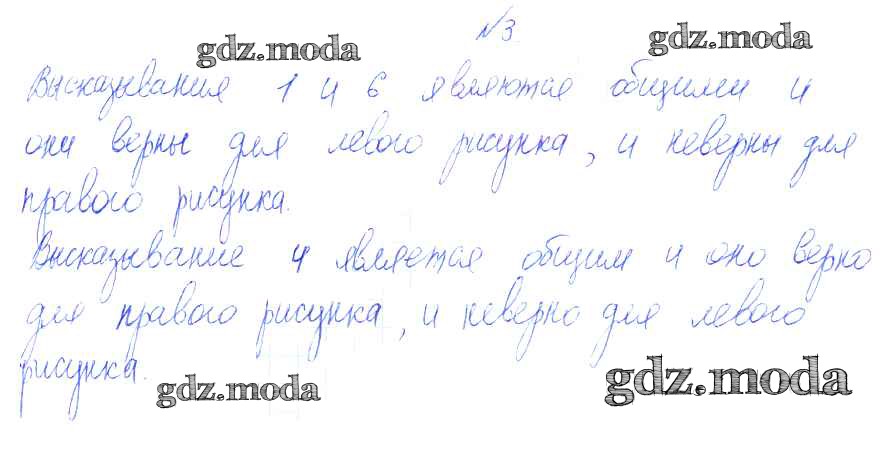 №3
gdz.moda gdz.moda
Высказывания 1 и 6 являются общими и
они верны для левого рисунка, и неверны для
правого рисунка.
Высказывание 4 является общим и оно верно
для правого рисунка, и неверно для левого
рисунка.
gdz.moda gdz.moda